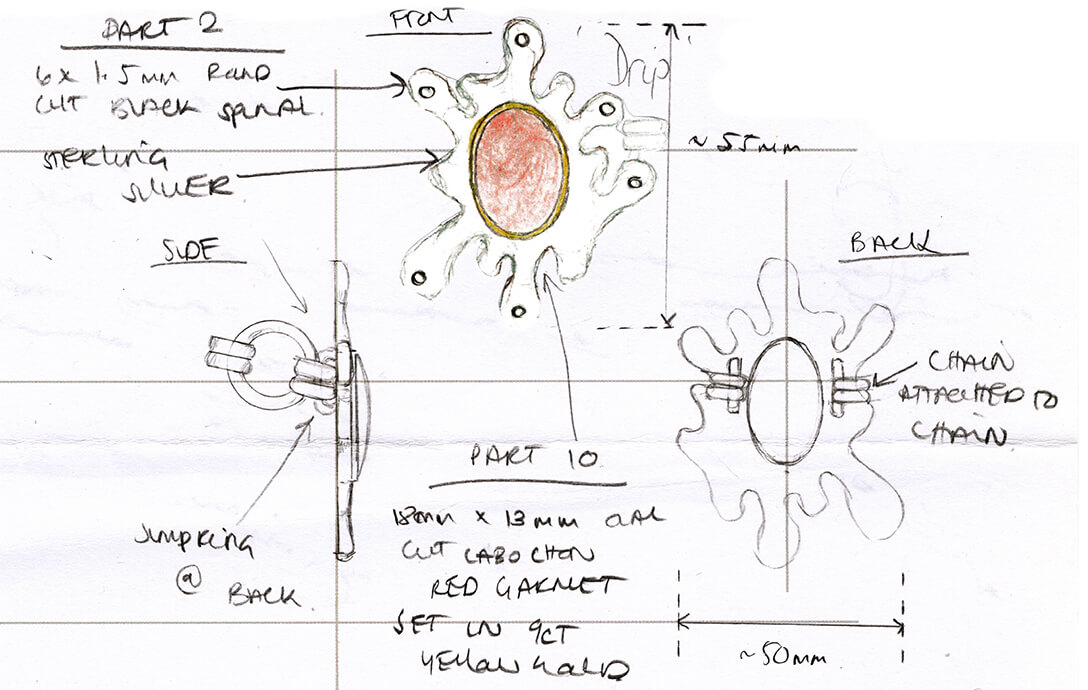 PART 2
6 x 1.5mm ROUND
CUT BLACK SPINAL.
STERLING
SILVER
FRONT
Drip
~55mm
SIDE
JUMPRING
@
BACK.
BACK
CHAIN
ATTACHED TO
CHAIN
PART 10
18mm x 13mm OVAL
CUT CABOCHON
RED GARNET
SET IN 9CT
YELLOW GOLD
~50mm